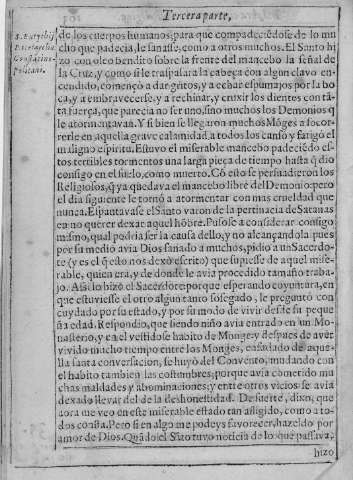 Tercera parte,
S. Eutychij
Patriarcha
Constātino-
politano.
de los cuerpos humanos, para que compadeciēdose de lo mu
cho que padecia, le sanasse, como a otros muchos. El Santo hi
zo con oleo bendito sobre la frente del mancebo la señal de
la Cruz, y como si le traspassara la cabeça con algun clavo en-
cendido, començo a dar gritos, y a echar espumajos por la bo
ca, y a embravecerse, y a rechinar, y cruxir los dientes con tā-
ta fuerça, que parecia no ser uno, sino muchos los Demonios q̄
le atormentavan. Y si bien se llegaron muchos Mōges a soco-
rrerle en aquella grave calamidad, a todos los canso y fatigó el
maligno espiritu. Estuvo el miserable mancebo padeciēdo es-
tos terribles tormentos una larga pieça de tiempo hasta q̄ dio
consigo en el suelo, como muerto. Cō esto se persuadieron los
Religiosos, q̄ ya quedava el mancebo libre del Demonio: pero
el dia siguiente le tornó a atormentar con mas crueldad que
nunca. Espantavase el Santo varon de la pertinacia de Satanas
en no querer dexar aquel hōbre. Pusose a considerar consigo
mismo, qual podria ser la causa dello, y no alcançandola pues
por su medio avia Dios sanado a muchos, pidio a un Sacerdo-
te (y es el q̄ esto nos dexó escrito) que supiesse de aquel mise-
rable, quien era, y de donde le avia procedido tamaño traba-
jo. Assi lo hizo el Sacerdote: porque esperando coyuntura, en
que estuviesse el otro algun tanto sossegado, le preguntó con
cuydado por su estado, y por su modo de vivir desde su peque
ña edad. Respondio, que siendo niño avia entrado en un Mo-
nasterio, y en el vestidose habito de Monge: y despues de aver
vivido mucho tiempo entre los Monges, cansado de aque-
lla santa conversacion, se huyó del Convento, mudando con
el habito tambien las costumbres; porque avia cometido mu
chas maldades y abominaciones: y entre otros vicios se avia
dexado llevar del de la deshonestidad. De suerte, dixo, que
aora me veo en este miserable estado tan afligido, como a to-
dos consta. Pero si en algo me podeys favorecer, hazeldo por
amor de Dios. Quādo el Sāto tuvo noticia de lo que passava,
hizo